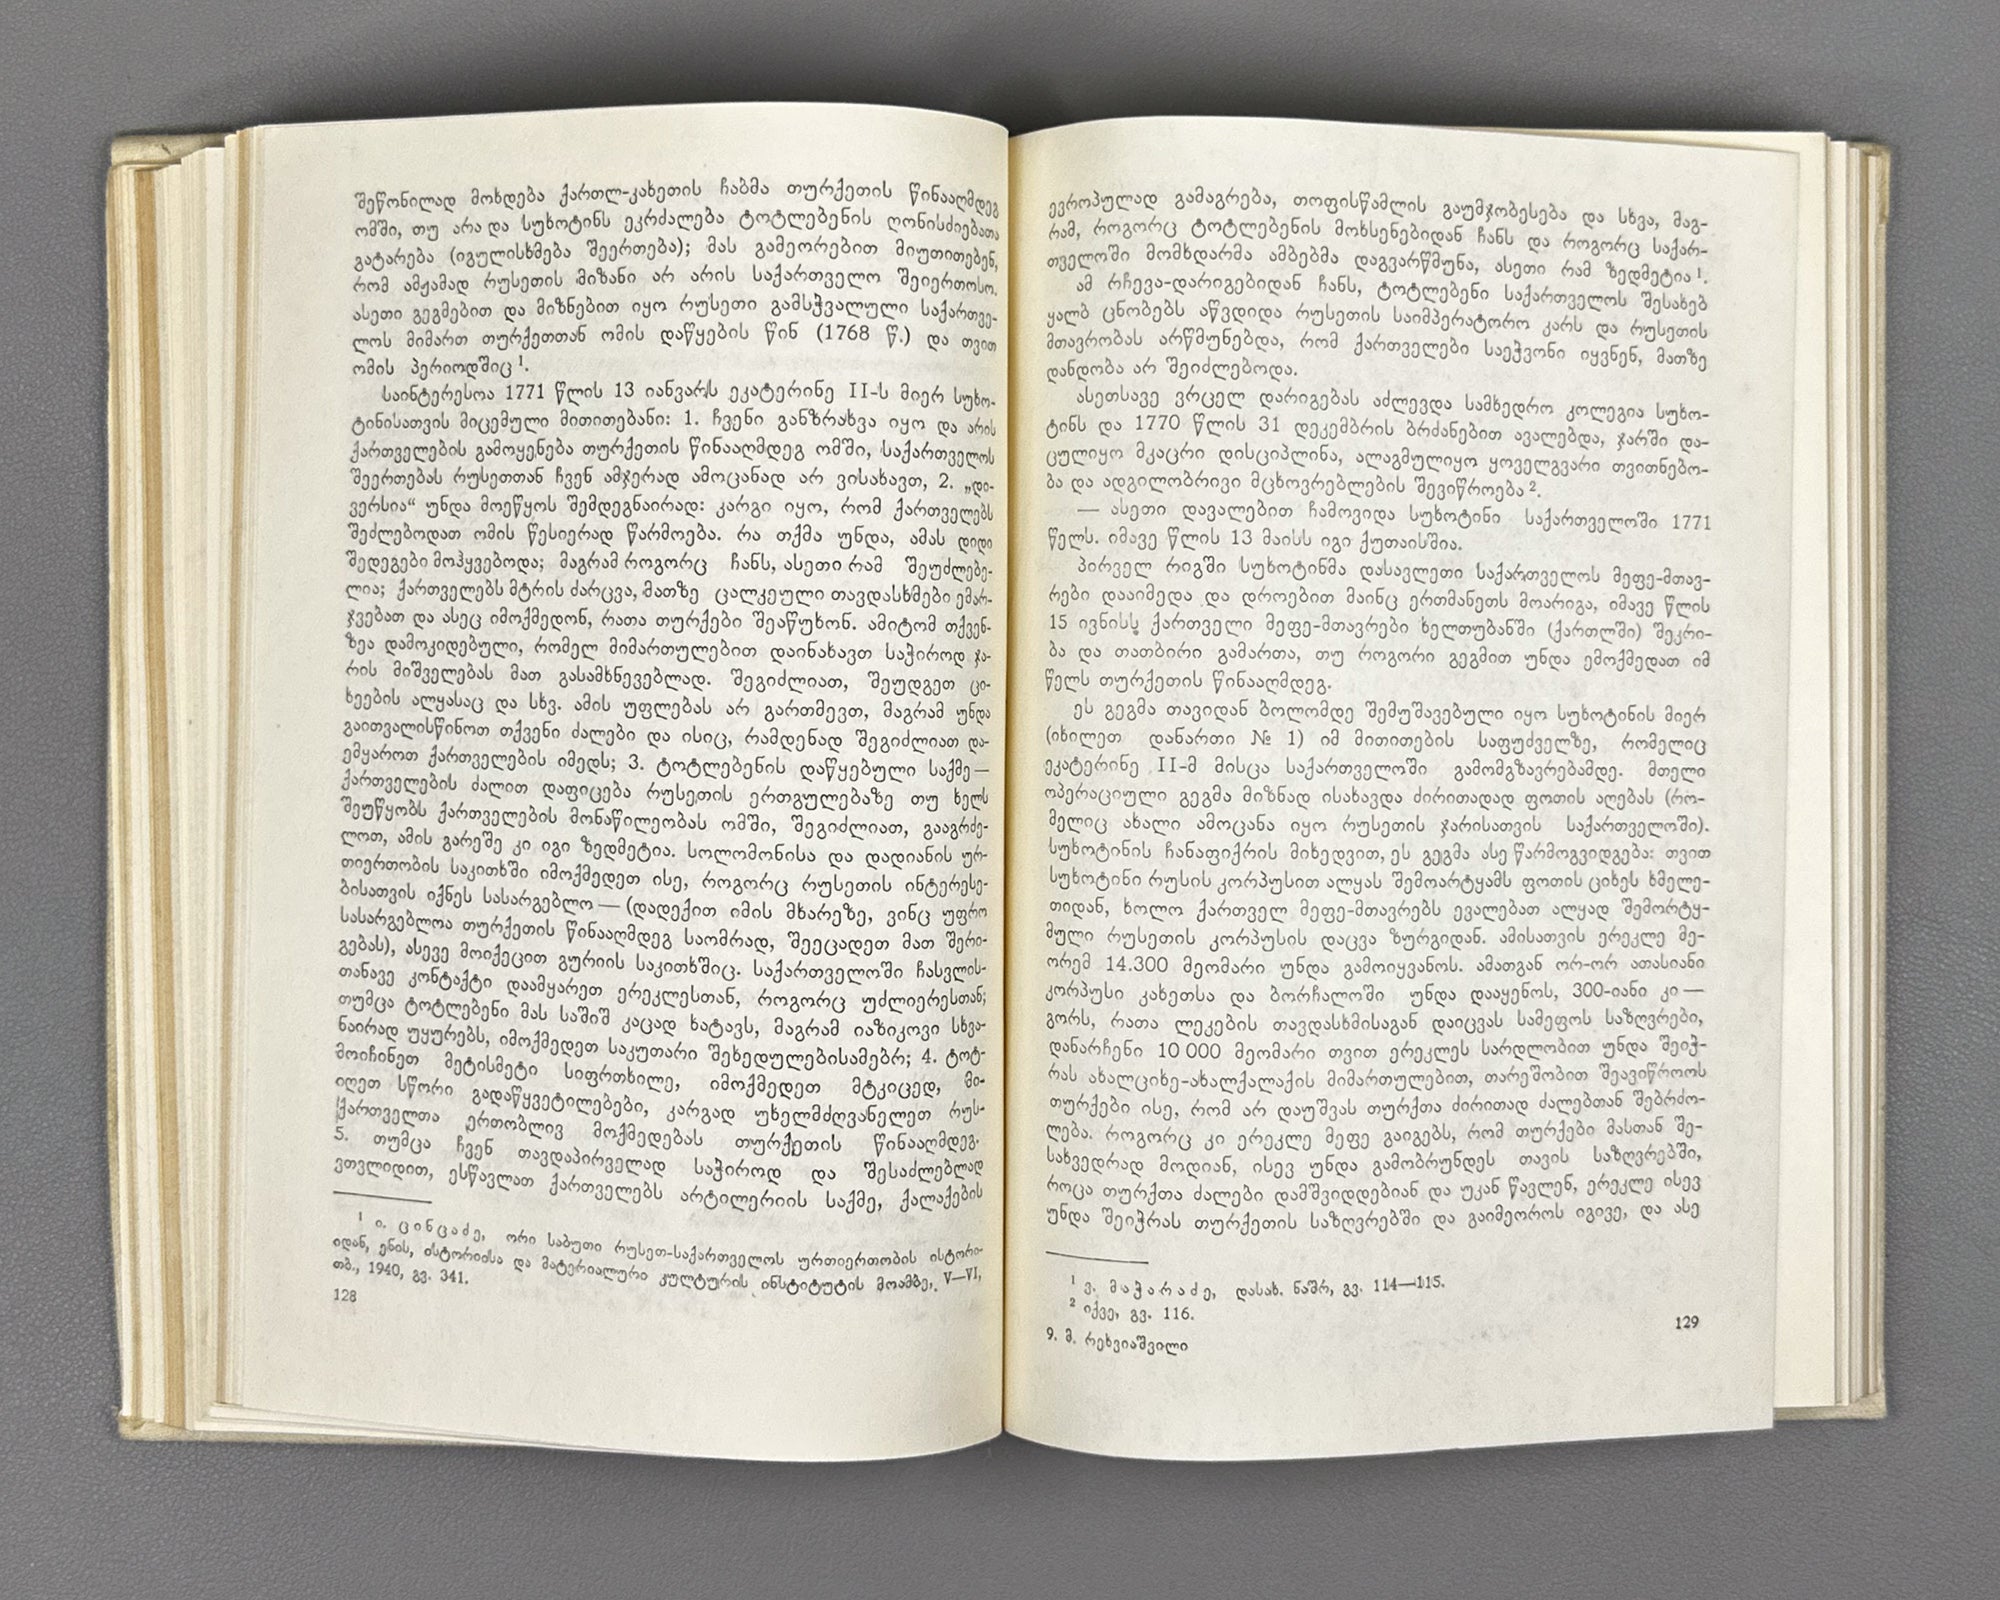 შეწონილად მოხდება ქართლ-კახეთის ჩაბმა თურქეთის წინააღმდეგ
ომში, თუ არა და სუხოტინს ეკრძალება ტოტლებენის ღონისძიებათა
გატარება (იგულისხმება შეერთება); მას გამეორებით მიუთითებენ,
რომ ამჟამად რუსეთის მიზანი არ არის საქართველო შეიერთოსო.
ასეთი გეგმებით და მიზნებით იყო რუსეთი გამსჭვალული საქართვე-
ლოს მიმართ თურქეთთან ომის დაწყების წინ (1768 წ.) და თვით
ომის პერიოდშიც ¹.
საინტერესოა 1771 წლის 13 იანვარს ეკატერინე II-ს მიერ სუხო-
ტინისათვის მიცემული მითითებანი: 1. ჩვენი განზრახვა იყო და არის
ქართველების გამოყენება თურქეთის წინააღმდეგ ომში, საქართველოს
შეერთებას რუსეთთან ჩვენ ამჯერად ამოცანად არ ვისახავთ, 2. „დი-
ვერსია“ უნდა მოეწყოს შემდეგნაირად: კარგი იყო, რომ ქართველებს
შეძლებოდათ ომის წესიერად წარმოება. რა თქმა უნდა, ამას დიდი
შედეგები მოჰყვებოდა; მაგრამ როგორც ჩანს, ასეთი რამ შეუძლებე-
ლია; ქართველებს მტრის ძარცვა, მათზე ცალკეული თავდასხმები ემარ-
ჯვებათ და ასეც იმოქმედონ, რათა თურქები შეაწუხონ. ამიტომ თქვენ-
ზეა დამოკიდებული, რომელ მიმართულებით დაინახავთ საჭიროდ ჯა-
რის მიშველებას მათ გასამხნევებლად. შეგიძლიათ, შეუდგეთ ცი-
ხეების ალყასაც და სხვ. ამის უფლებას არ გართმევთ, მაგრამ უნდა
გაითვალისწინოთ თქვენი ძალები და ისიც, რამდენად შეგიძლიათ და-
ემყაროთ ქართველების იმედს; 3. ტოტლებენის დაწყებული საქმე —
ქართველების ძალით დაფიცება რუსეთის ერთგულებაზე თუ ხელს
შეუწყობს ქართველების მონაწილეობას ომში, შეგიძლიათ, გააგრძე-
ლოთ, ამის გარეშე კი იგი ზედმეტია. სოლომონისა და დადიანის ურ-
თიერთობის საკითხში იმოქმედეთ ისე, როგორც რუსეთის ინტერესე-
ბისათვის იქნეს სასარგებლო — (დადექით იმის მხარეზე, ვინც უფრო
სასარგებლოა თურქეთის წინააღმდეგ საომრად, შეეცადეთ მათ შერი-
გებას), ასევე მოიქეცით გურიის საკითხშიც. საქართველოში ჩასვლის-
თანავე კონტაქტი დაამყარეთ ერეკლესთან, როგორც უძლიერესთან;
თუმცა ტოტლებენი მას საშიშ კაცად ხატავს, მაგრამ იაზიკოვი სხვა-
ნაირად უყურებს, იმოქმედეთ საკუთარი შეხედულებისამებრ; 4. ტოტ-
მოიჩინეთ მეტისმეტი სიფრთხილე, იმოქმედეთ მტკიცედ, მი-
იღეთ სწორი გადაწყვეტილებები, კარგად უხელმძღვანელეთ რუს-
ქართველთა ერთობლივ მოქმედებას თურქეთის წინააღმდეგ.
5. თუმცა ჩვენ თავდაპირველად საჭიროდ და შესაძლებლად
ვთვლიდით, ესწავლათ ქართველებს არტილერიის საქმე, ქალაქების
¹ ი. ცინცაძე, ორი საბუთი რუსეთ-საქართველოს ურთიერთობის ისტორი-
იდან, ენის, ისტორიისა და მატერიალური კულტურის ინსტიტუტის მოამბე, V—VI,
თბ., 1940, გვ. 341.
128
ევროპულად გამაგრება, თოფისწამლის გაუმჯობესება და სხვა, მაგ-
რამ, როგორც ტოტლებენის მოხსენებიდან ჩანს და როგორც საქარ-
თველოში მომხდარმა ამბებმა დაგვარწმუნა, ასეთი რამ ზედმეტია ¹.
ამ რჩევა-დარიგებიდან ჩანს, ტოტლებენი საქართველოს შესახებ
ყალბ ცნობებს აწვდიდა რუსეთის საიმპერატორო კარს და რუსეთის
მთავრობას არწმუნებდა, რომ ქართველები საეჭვონი იყვნენ, მათზე
დანდობა არ შეიძლებოდა.
ასეთსავე ვრცელ დარიგებას აძლევდა სამხედრო კოლეგია სუხო-
ტინს და 1770 წლის 31 დეკემბრის ბრძანებით ავალებდა, ჯარში და-
ცულიყო მკაცრი დისციპლინა, ალაგმულიყო ყოველგვარი თვითნებო-
ბა და ადგილობრივი მცხოვრებლების შევიწროება ².
— ასეთი დავალებით ჩამოვიდა სუხოტინი საქართველოში 1771
წელს. იმავე წლის 13 მაისს იგი ქუთაისშია.
პირველ რიგში სუხოტინმა დასავლეთი საქართველოს მეფე-მთავ-
რები დააიმედა და დროებით მაინც ერთმანეთს მოარიგა, იმავე წლის
15 ივნისს ქართველი მეფე-მთავრები ხელთუბანში (ქართლში) შეკრი-
ბა და თათბირი გამართა, თუ როგორი გეგმით უნდა ემოქმედათ იმ
წელს თურქეთის წინააღმდეგ.
ეს გეგმა თავიდან ბოლომდე შემუშავებული იყო სუხოტინის მიერ
(იხილეთ დანართი № 1) იმ მითითების საფუძველზე, რომელიც
ეკატერინე II-მ მისცა საქართველოში გამომგზავრებამდე. მთელი
ოპერაციული გეგმა მიზნად ისახავდა ძირითადად ფოთის აღებას (რო-
მელიც ახალი ამოცანა იყო რუსეთის ჯარისათვის საქართველოში).
სუხოტინის ჩანაფიქრის მიხედვით, ეს გეგმა ასე წარმოგვიდგება: თვით
სუხოტინი რუსის კორპუსით ალყას შემოარტყამს ფოთის ციხეს ხმელე-
თიდან, ხოლო ქართველ მეფე-მთავრებს ევალებათ ალყად შემორტყ-
მული რუსეთის კორპუსის დაცვა ზურგიდან. ამისათვის ერეკლე მე-
ორემ 14.300 მეომარი უნდა გამოიყვანოს. ამათგან ორ-ორ ათასიანი
კორპუსი კახეთსა და ბორჩალოში უნდა დააყენოს, 300-იანი კი —
გორს, რათა ლეკების თავდასხმისაგან დაიცვას სამეფოს საზღვრები,
დანარჩენი 10 000 მეომარი თვით ერეკლეს სარდლობით უნდა შეიჭ-
რას ახალციხე-ახალქალაქის მიმართულებით, თარეშობით შეავიწროოს
თურქები ისე, რომ არ დაუშვას თურქთა ძირითად ძალებთან შებრძო-
ლება. როგორც კი ერეკლე მეფე გაიგებს, რომ თურქები მასთან შე-
სახვედრად მოდიან, ისევ უნდა გამობრუნდეს თავის საზღვრებში,
როცა თურქთა ძალები დამშვიდდებიან და უკან წავლენ, ერეკლე ისევ
უნდა შეიჭრას თურქეთის საზღვრებში და გაიმეოროს იგივე, და ასე
¹ ვ. მაჭარაძე, დასახ. ნაშრ, გვ. 114—115.
² იქვე, გვ. 116.
9. მ. რეხვიაშვილი
129